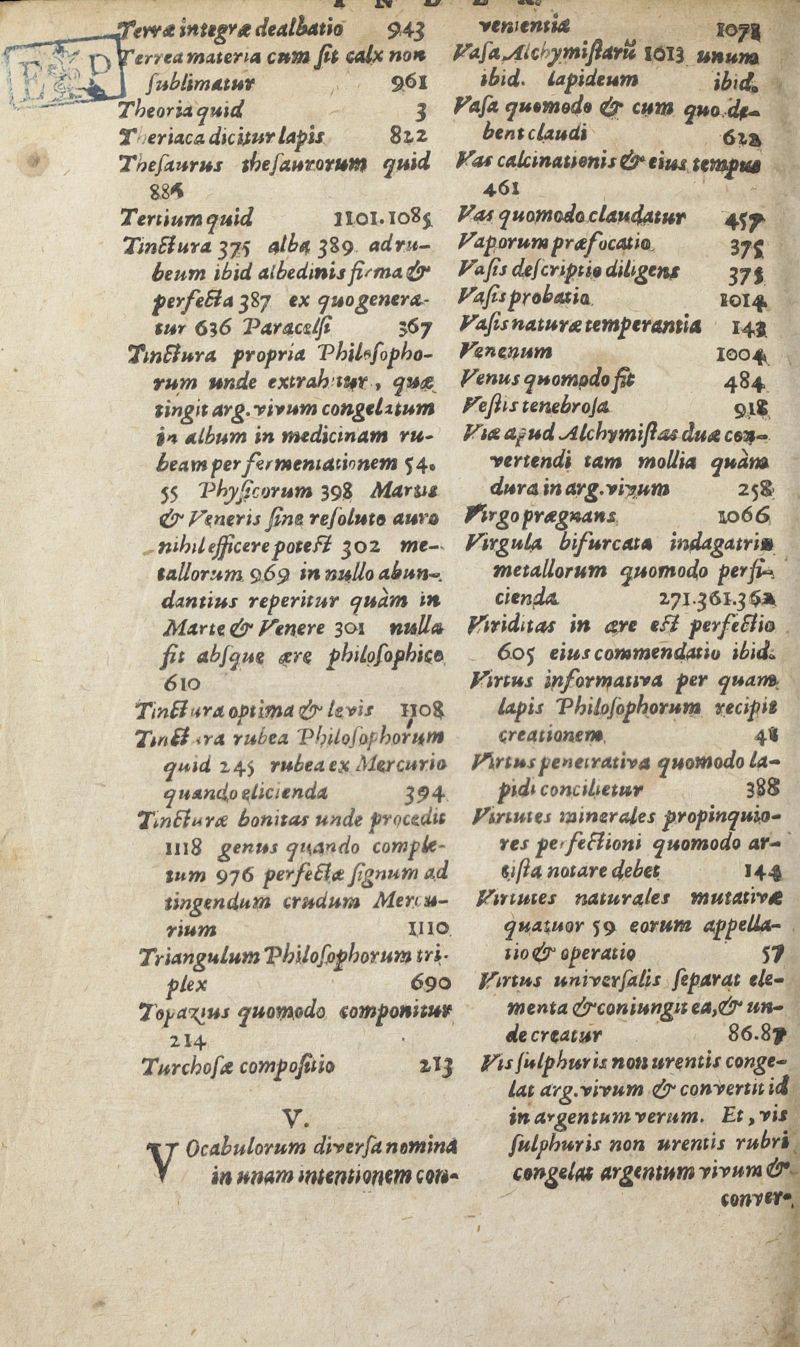 INDEX.
Terræ integræ dealbatio 943
Terrea materia cum ſit calx non
ſublimatur 961
Theoria quid 3
Theriaca dicitur lapis 822
Theſaurus theſaurorum quid
886
Tertium quid 1101.1085
Tinctura 375 alba 389 ad ru-
beum ibid albedinis firma &
perfecta 387 ex quo genera-
tur 636 Paracelſi 367
Tinctura propria Philoſopho-
rum unde extrahitur, quæ
tingit arg. vivum congelatum
in album in medicinam ru-
beam per fermentationem 54.
55 Phyſicorum 398 Martis
& Veneris ſine reſoluto auro
nihil efficere poteſt 302 me-
tallorum 969 in nullo abun-
dantius reperitur quàm in
Marte & Venere 301 nulla
fit abſque ære philoſophico
610
Tinctura optima & levis 1108
Tinctura rubea Philoſophorum
quid 245 rubea ex Mercurio
quando elicienda 394
Tincturæ bonitas unde procedit
1118 genus quando comple-
tum 976 perfectæ ſignum ad
tingendum crudum Mercu-
rium 1110
Triangulum Philoſophorum tri-
plex 690
Topazius quomodo componitur
214
Turchoſæ compoſitio 213
V.
VOcabulorum diverſa nomina
in unam intentionem con-
venientia 1073
Vaſa Alchymiſtarū 1013 unum
ibid. lapideum ibid.
Vaſa quomodo & cum quo de-
bent claudi 622
Vas calcinationis & eius tempus
461
Vas quomodo claudatur 457
Vaporum præfocatio 375
Vaſis deſcriptio diligens 375
Vaſis probatio 1014
Vaſis naturæ temperantia 143
Venenum 1004
Venus quomodo fit 484
Veſtis tenebroſa 918
Viæ apud Alchymiſtas duæ con-
vertendi tam mollia quàm
dura in arg. vivum 258
Virgo prægnans 1066
Virgula bifurcata indagatrix
metallorum quomodo perfi-
cienda 271.361.362
Viriditas in ære eſt perfectio
605 eius commendatio ibid.
Virtus informativa per quam
lapis Philoſophorum recipit
creationem 48
Virtus penetrativa quomodo la-
pidi concilietur 388
Virtutes minerales propinquio-
res perfectioni quomodo ar-
tiſta notare debet 144
Virtutes naturales mutativæ
quatuor 59 eorum appella-
tio & operatio 57
Virtus univerſalis ſeparat ele-
menta & coniungit ea, & un-
de creatur 86.87
Vis ſulphuris non urentis conge-
lat arg. vivum & convertit id
in argentum verum. Et, vis
ſulphuris non urentis rubri
congelat argentum vivum &
conver-